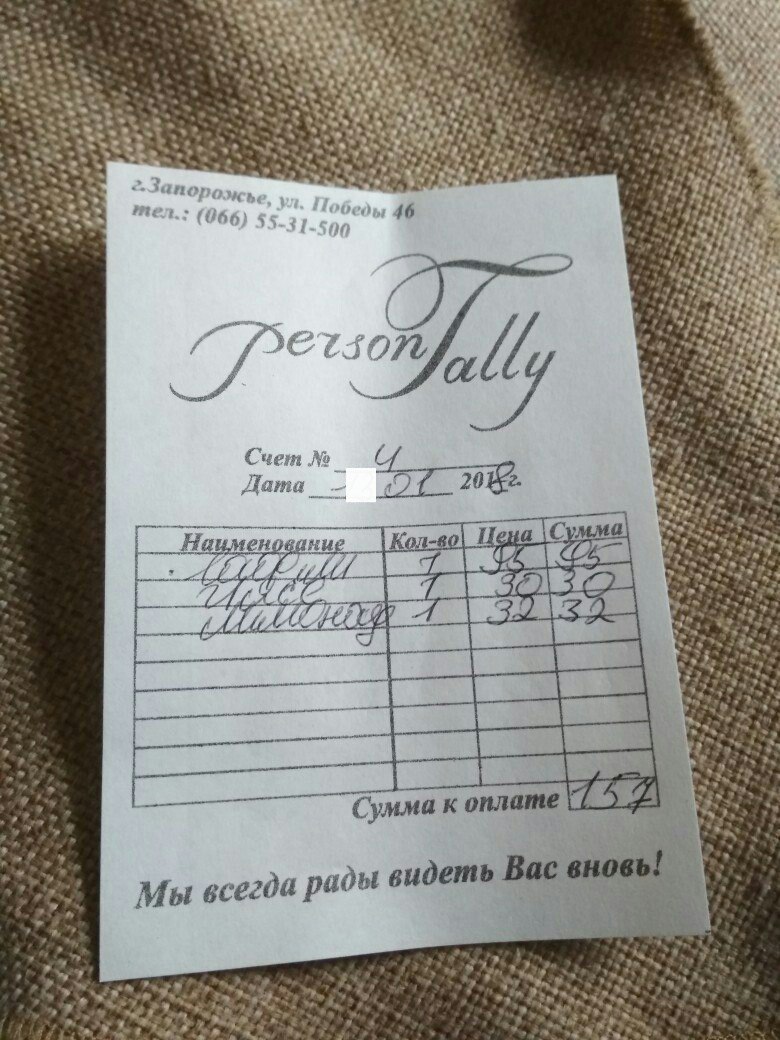 г.Запорожье, ул. Победы 46
тел.: (066) 55-31-500
person Tally
Счет № 4
Дата 01 2018г.
Наименование Кол-во Цена Сумма
1 95 95
1 30 30
Лимонад 1 32 32
Сумма к оплате 157
Мы всегда рады видеть Вас вновь!